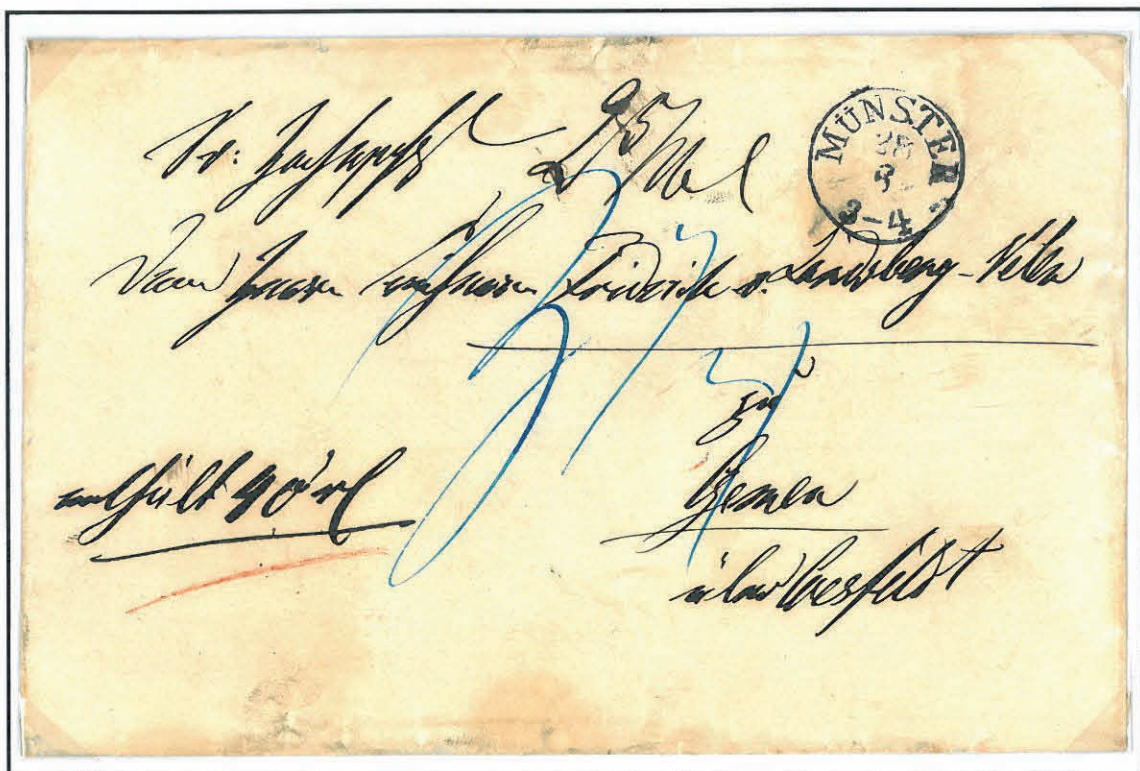 Sr: Hochwohl
MÜNSTER
28
8
3-4
Dem Herrn Freiherrn Friedrich v. Landsberg-Velen
zu
Gemen
enthält 40 rl
über Coesfeldt